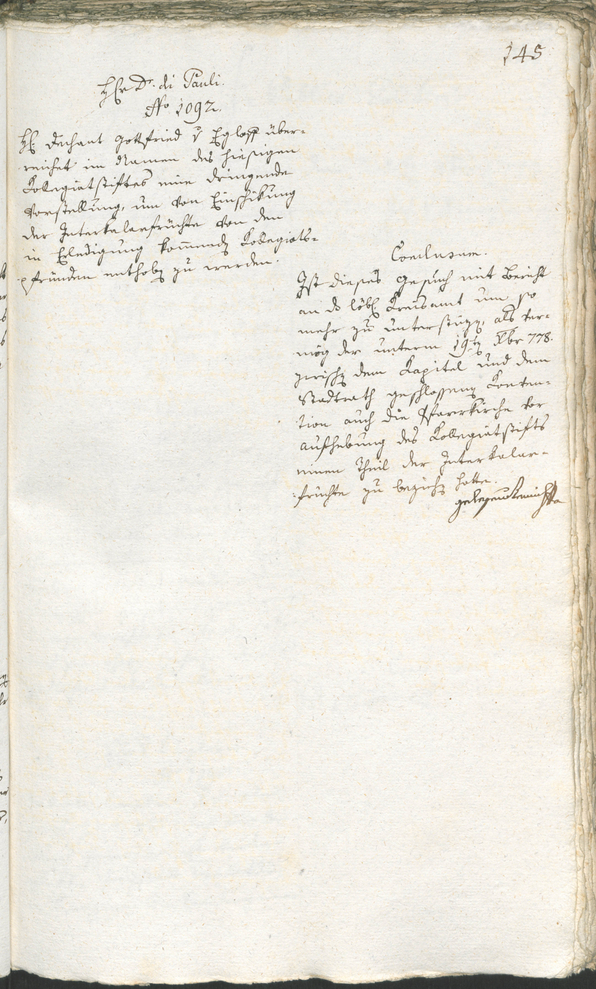 145
H Dr. di Pauli.
No 1092.
H. Dechant Gottfried v Egloff über-
reichet im Namen des hiesigen
Kollegiatstiftes eine dringende
Vorstellung, um von Einschikung
der Interkalarfrüchte von den
in Erledigung kommendn Kollegiats-
pfründen enthobn zu werden.
Conclusum.
Ist dieses Gesuch mit Bericht
an das löbl. Kreisamt um so
mehr zu unterstüzn, als ver-
mög der unterm 19tn Xbr 778.
zwischn dem Kapitel und dem
Stadtrath geschlossenen Konven-
tion auch die Pfarrkirche vor
Aufhebung des Kollegiatstifts
einen Theil der Interkalar-
früchte zu beziehn hatte.